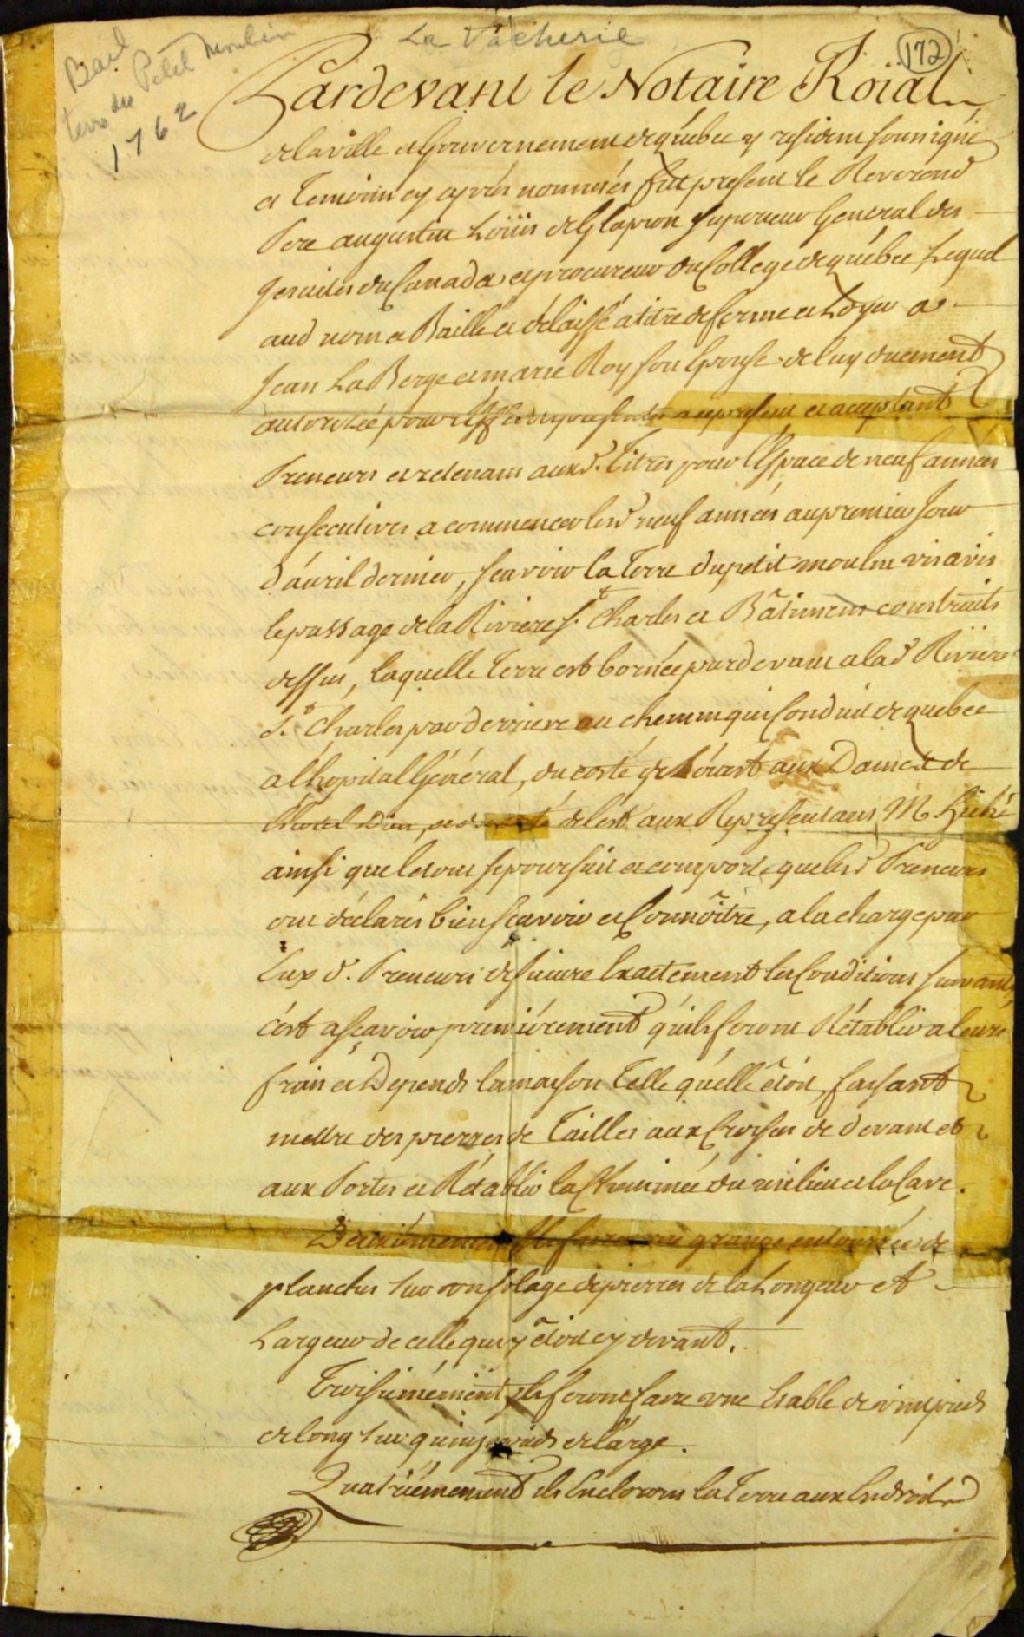 La Vacherie
172
Bail
terre du Petit Moulin
1762
Pardevant le Notaire Roial
de la ville et Gouvernement de québec y résident soussigné
et Temoins cy après nommés fut present le Reverend
Pere augustin Loüis de Glapion Superieur General des
Jesuites du Canada et procureur du College de québec Lequel
aud nom a Baillé et délaissé atitre de ferme et Loyer a
Jean LaBerge et marie Roy son Epouse de luy duement
autorisée pour l'effet des presentes a ce present et acceptant
Preneurs et retenans auxd. Titres pour l'Espace de neuf années
consecutives a commencer lesd neuf années au premier Jour
d'auril dernier, scavoir la Terre du petit moulin vis avis
le passage de la Riviere St. Charles et Bâtimens construits
dessus, laquelle Terre est bornée pardevant a lad Riviere
St. Charles par derriere au chemin qui conduit de quebec
a lhopital Général, du costé de L'ouest aux Dames de
l'hotel Dieu, et du costé de lest aux Representans M. Hiché
ainsi que le tout se poursuit et comporte que lesd Preneurs
ont déclarés bien scavoir et Connôitre, a la charge par
Eux d. Preneurs de suivre Exactement les Conditions suivant
c'est ascavoir premiérement qu'ils feront Rétablir a leurs
frais et Depends la maison Telle qu'elle étoit, faisant
mettre des pierres de Tailles aux Croisées de devant et
aux Portes et Rétablir la Cheminée du milieu et la Cave.
Deuxiémement Ils feront une grange entourée de
planches sur un solage de pierres de la Longeur et
Largeur de celle qui y étoit cy devant.
Troisiémement Ils feront faire une Etable de vingt pieds
de long sur quinze pieds de large.
Quatriémement ils Encloront la Terre aux Endroits